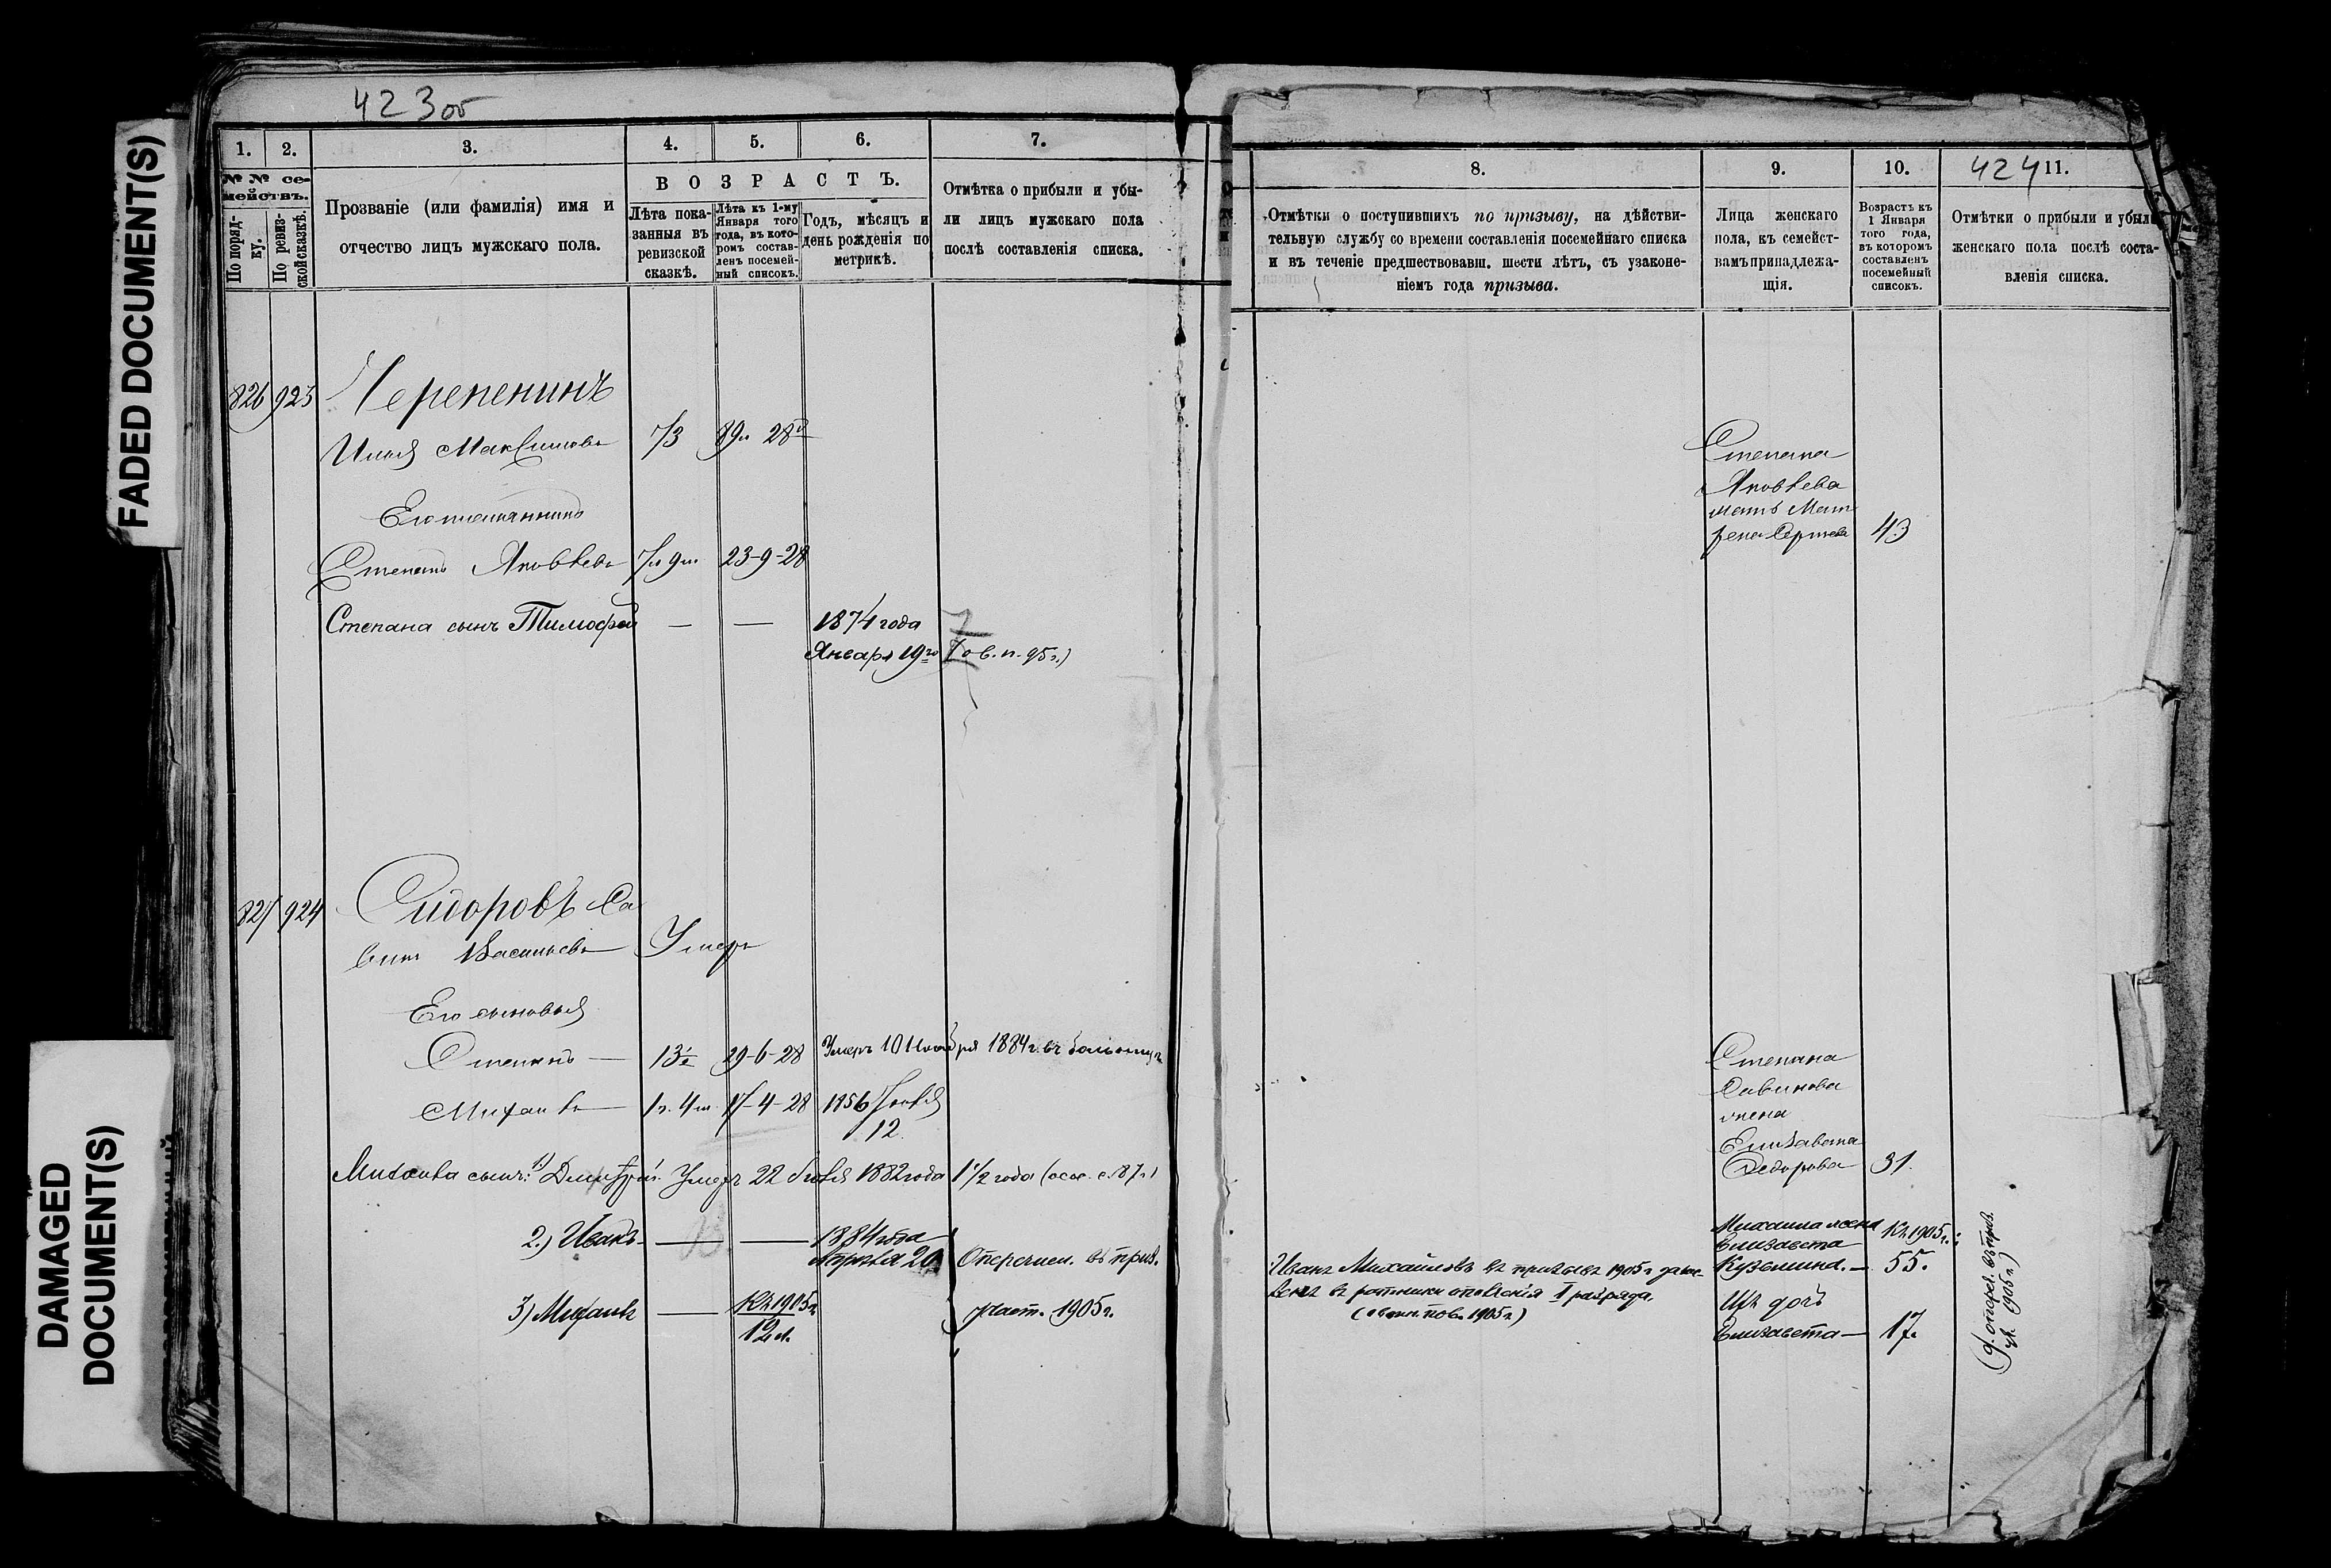 FADED DOCUMENT(S)
DAMAGED
DOCUMENT(S)
423 об
1.
2.
3.
4.
5.
6.
7.
№ № се-
мействъ.
По поряд-
ку.
По ревиз-
ской сказкѣ.
Прозваніе (или фамилія) имя и
отчество лицъ мужскаго пола.
ВОЗРАСТЪ.
Лѣта пока-
занныя въ
ревизской
сказкѣ.
Лѣта къ 1-му
Января того
года, въ кото-
ромъ состав-
ленъ посемей-
ный списокъ.
Годъ, мѣсяцъ и
день рожденія по
метрикѣ.
Отмѣтка о прибыли и убы-
ли лицъ мужскаго пола
послѣ составленія списка.
826 923 Черепенинъ
Илья Максимовъ 73 89 28
Его племянникъ
Степанъ Яковлевъ 7 9 23-9-28
Степана сынъ Тимофей — — 1874 года
Января 19го 95 г.)
827 924 Сидоровъ Са
винъ Васильевъ Умеръ
Его сыновья
Степанъ — 13½ 29-6-28 Умеръ 10 Ноября 1884 г. въ больницѣ
Михаилъ — 1 г. 4 м. 17-4-28 1856 Іюля
12
Михаила сынъ: 1) Дмитрій. Умеръ 22 Іюля 1882 года 1½ года
2.) Иванъ — — 1884 года
Апрѣля 20 Отчислен. въ
3) Михаилъ — Къ 1905 г.
12 л. 1905 г.
8.
9.
10.
424
11.
Отмѣтки о поступившихъ по призыву, на дѣйстви-
тельную службу со времени составленія посемейнаго списка
и въ теченіе предшествовавш. шести лѣтъ, съ узаконе-
ніемъ года призыва.
Лица женскаго
пола, къ семейст-
вамъ принадлежа-
щія.
Возрастъ къ
1 Января
того года,
въ которомъ
составленъ
посемейный
списокъ.
Отмѣтки о прибыли и убыли
женскаго пола послѣ соста-
вленія списка.
Степана
Яковлева
мать Мат
рена Сергѣева 43
Степана
Савинова
жена
Елизавета
Федорова 31.
Михаила жена Къ 1905 г.:
Елизавета
Кузьмина. — 55.
Ихъ дочь
Елизавета — 17.
Иванъ Михайловъ въ призывъ 1905 г. зачи-
сленъ въ ратники ополченія I разряда.
1905 г.)
1905 г.)